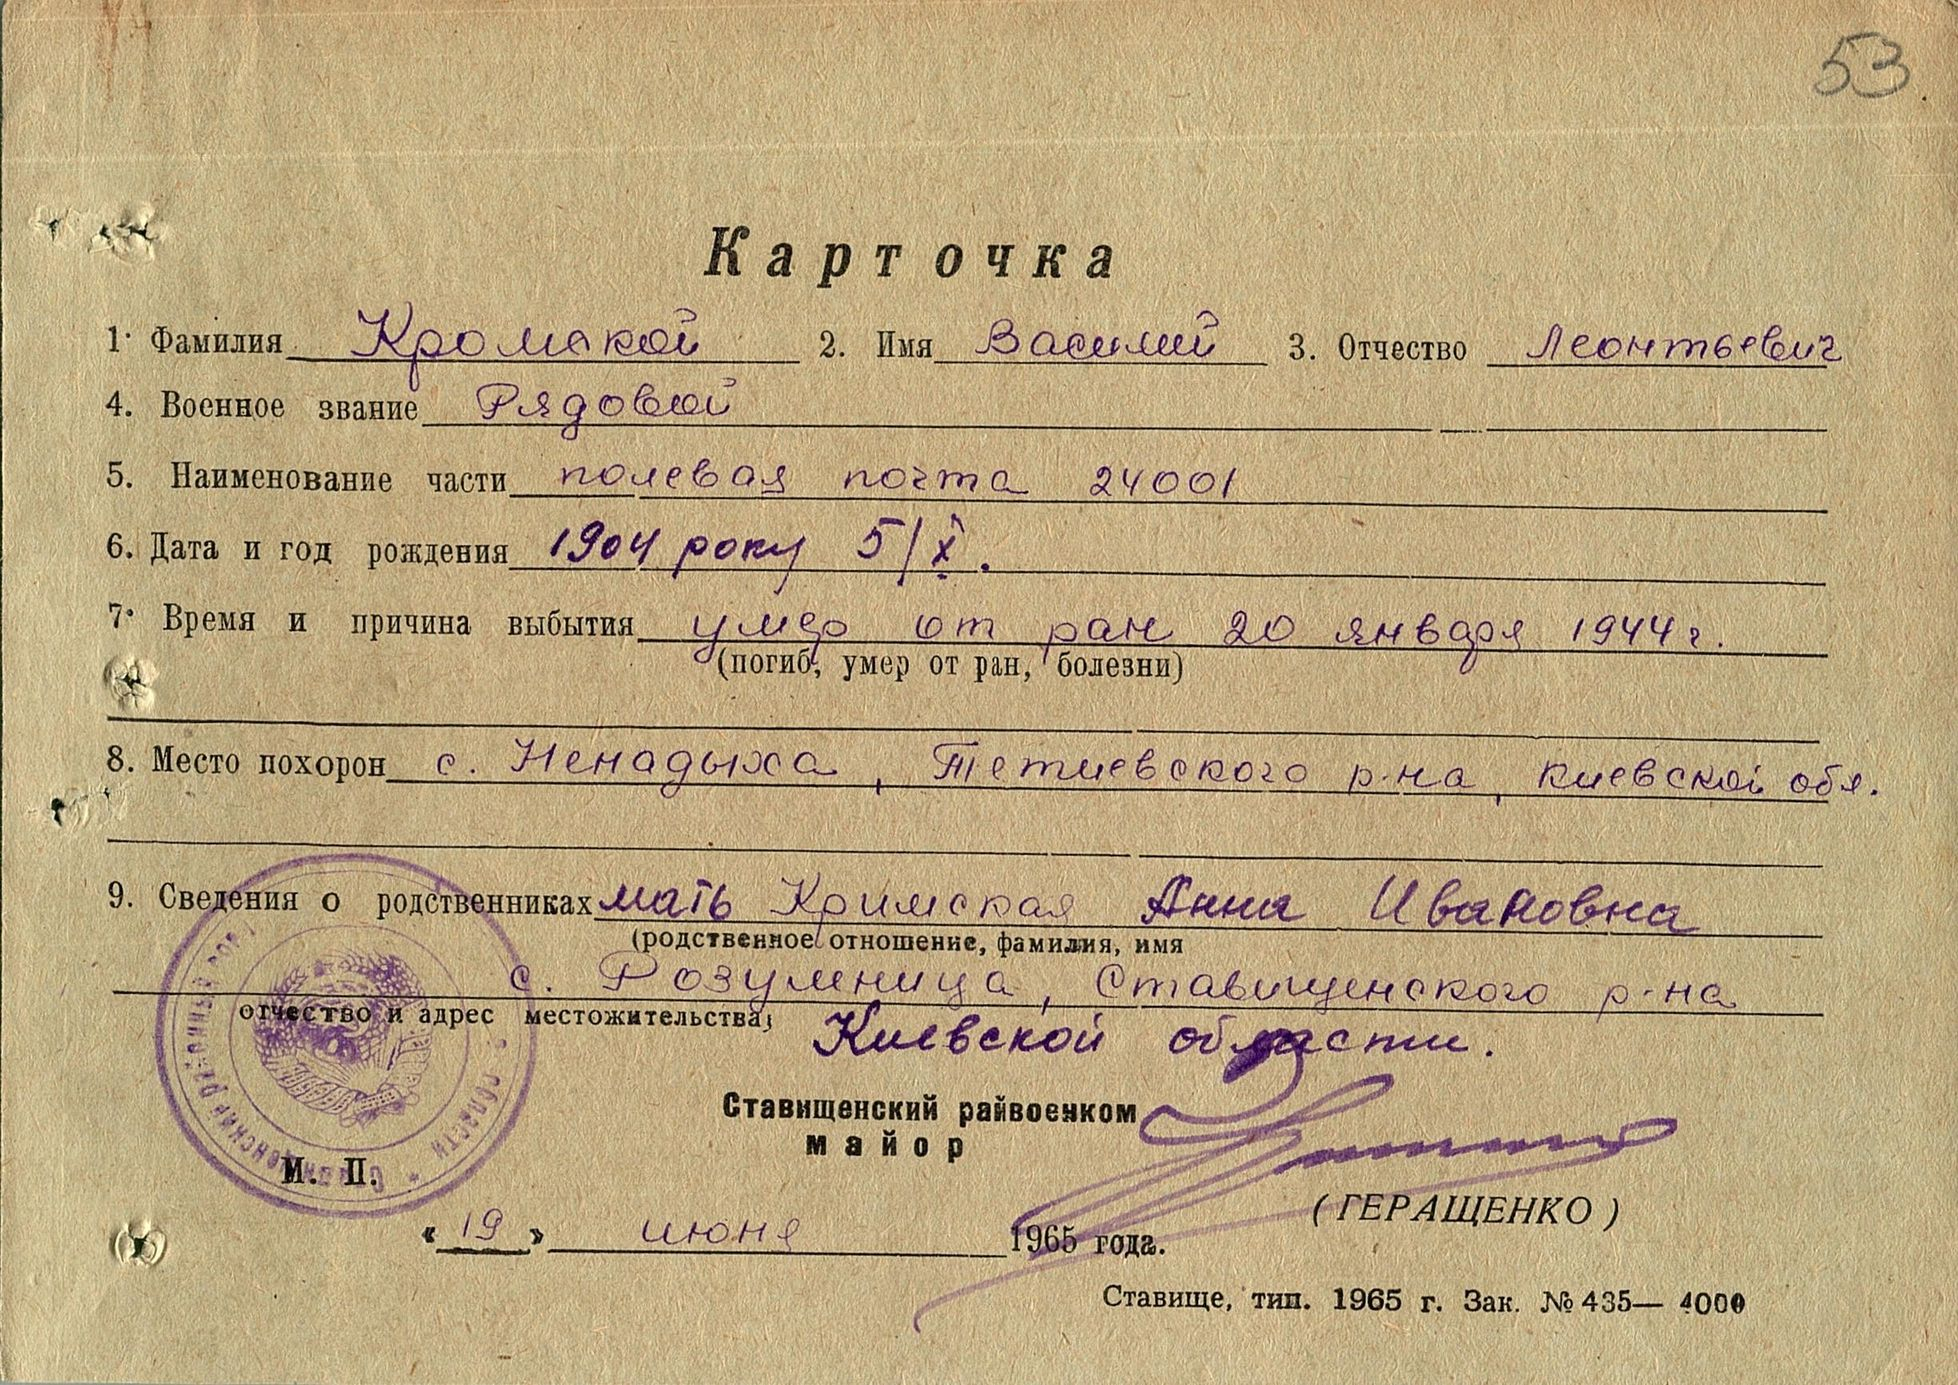 53
Карточка
1. Фамилия Кромской 2. Имя Василий 3. Отчество Леонтьевич
4. Военное звание Рядовой
5. Наименование части полевая почта 24001
6. Дата и год рождения 1904 року 5/X.
7. Время и причина выбытия умер от ран 20 января 1944 г.
(погиб, умер от ран, болезни)
8. Место похорон с. Ненадыха, Тетиевского р-на, Киевской обл.
9. Сведения о родственниках мать Кримская Анна Ивановна
(родственное отношение, фамилия, имя
с. Розумница, Ставищенского р-на
отчество и адрес местожительства)
Киевской области.
Ставищенский райвоенком
майор
М. П.
(ГЕРАЩЕНКО)
«19» июня 1965 года.
Ставище, тип. 1965 г. Зак. № 435—4000